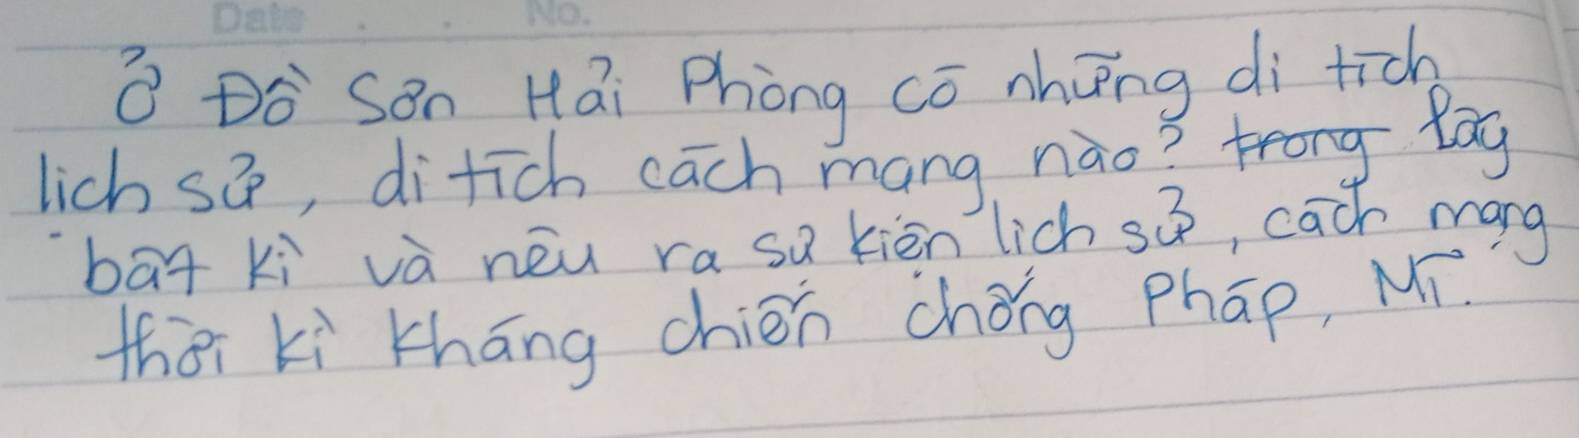 Date No.
Ở Đồ Sơn Hải Phòng có những di tích
lịch sử, di tích cách mạng nào? trong Lấy
bất kì và nêu ra sự kiện lịch sử, cách mạng
thời kì kháng chiến chống Pháp, Mĩ.